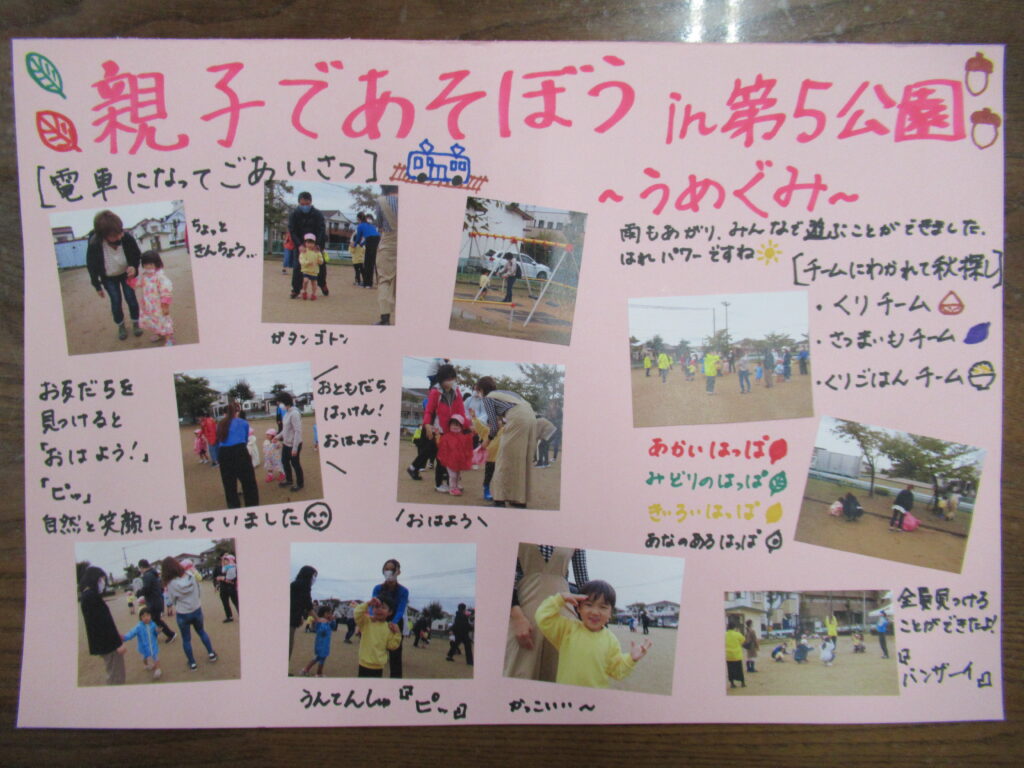 親子であそぼう in 第5公園
～うめぐみ～
[電車になってごあいさつ]
ちょっと
きんちょう…
ガタンゴトン
お友だちを
見つけると
「おはよう！」
「ピッ」
自然と笑顔になっていました
おともだち
はっけん！
おはよう！
おはよう
うんてんしゅ『ピッ』
かっこいい～
雨もあがり、みんなで遊ぶことができました。
はれパワーですね
[チームにわかれて秋探し]
・くりチーム
・さつまいもチーム
・くりごはんチーム
あかいはっぱ
みどりのはっぱ
きいろいはっぱ
あなのあるはっぱ
全員見つけろ
ことができたよ！
『バンザーイ』